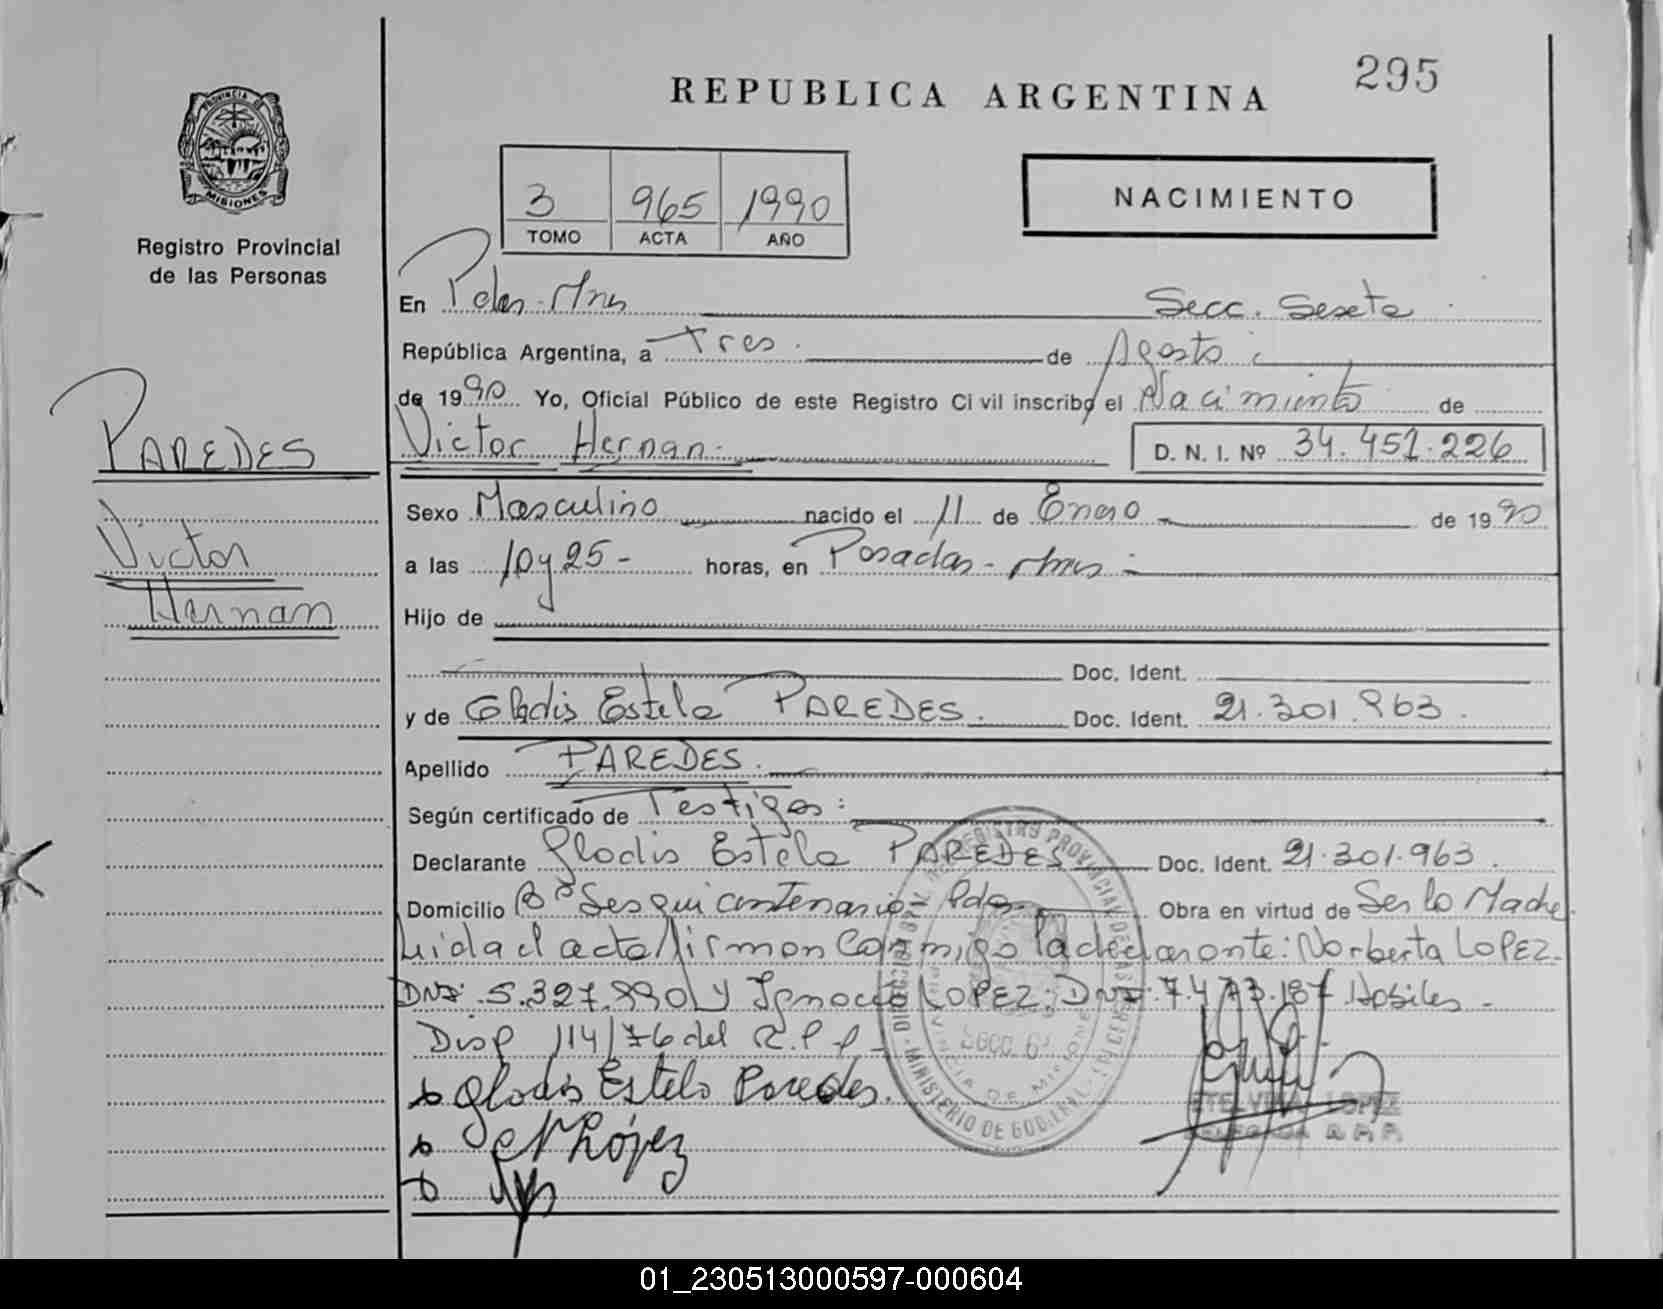 295
REPUBLICA ARGENTINA
PROVINCIA DE
MISIONES
Registro Provincial
de las Personas
3 965 1990
TOMO ACTA AÑO
NACIMIENTO
En Pdas. Mnes Secc. Sexta
República Argentina, a Tres. de Agosto
de 1990 Yo, Oficial Público de este Registro Civil inscribo el Nacimiento de
Victor Hernan. D. N. I. Nº 34.451.226
PAREDES
Victor
Hernan
Sexo Masculino nacido el 11 de Enero de 1990
a las 10 y 25 - horas, en Posadas - Mnes -
Hijo de
Doc. Ident.
y de Gladis Estela PAREDES. Doc. Ident. 21.301.963.
Apellido PAREDES.
Según certificado de Testigos:
Declarante Gladis Estela PAREDES Doc. Ident. 21.301.963.
Domicilio Bº Sesquicentenario - Pdas Obra en virtud de Ser la Madre
Leida el acta firman conmigo la declarante: Norberta LOPEZ.
DNI. 5.327.990 y Ignacio LOPEZ. DNI. 7.473.187 Habiles -
Disp 114/76 del R.P.P -
Gladis Estela Paredes.
N López
ETELVINA LOPEZ
DELEGADA R.P.P.
SECC. 6ª
01_230513000597-000604